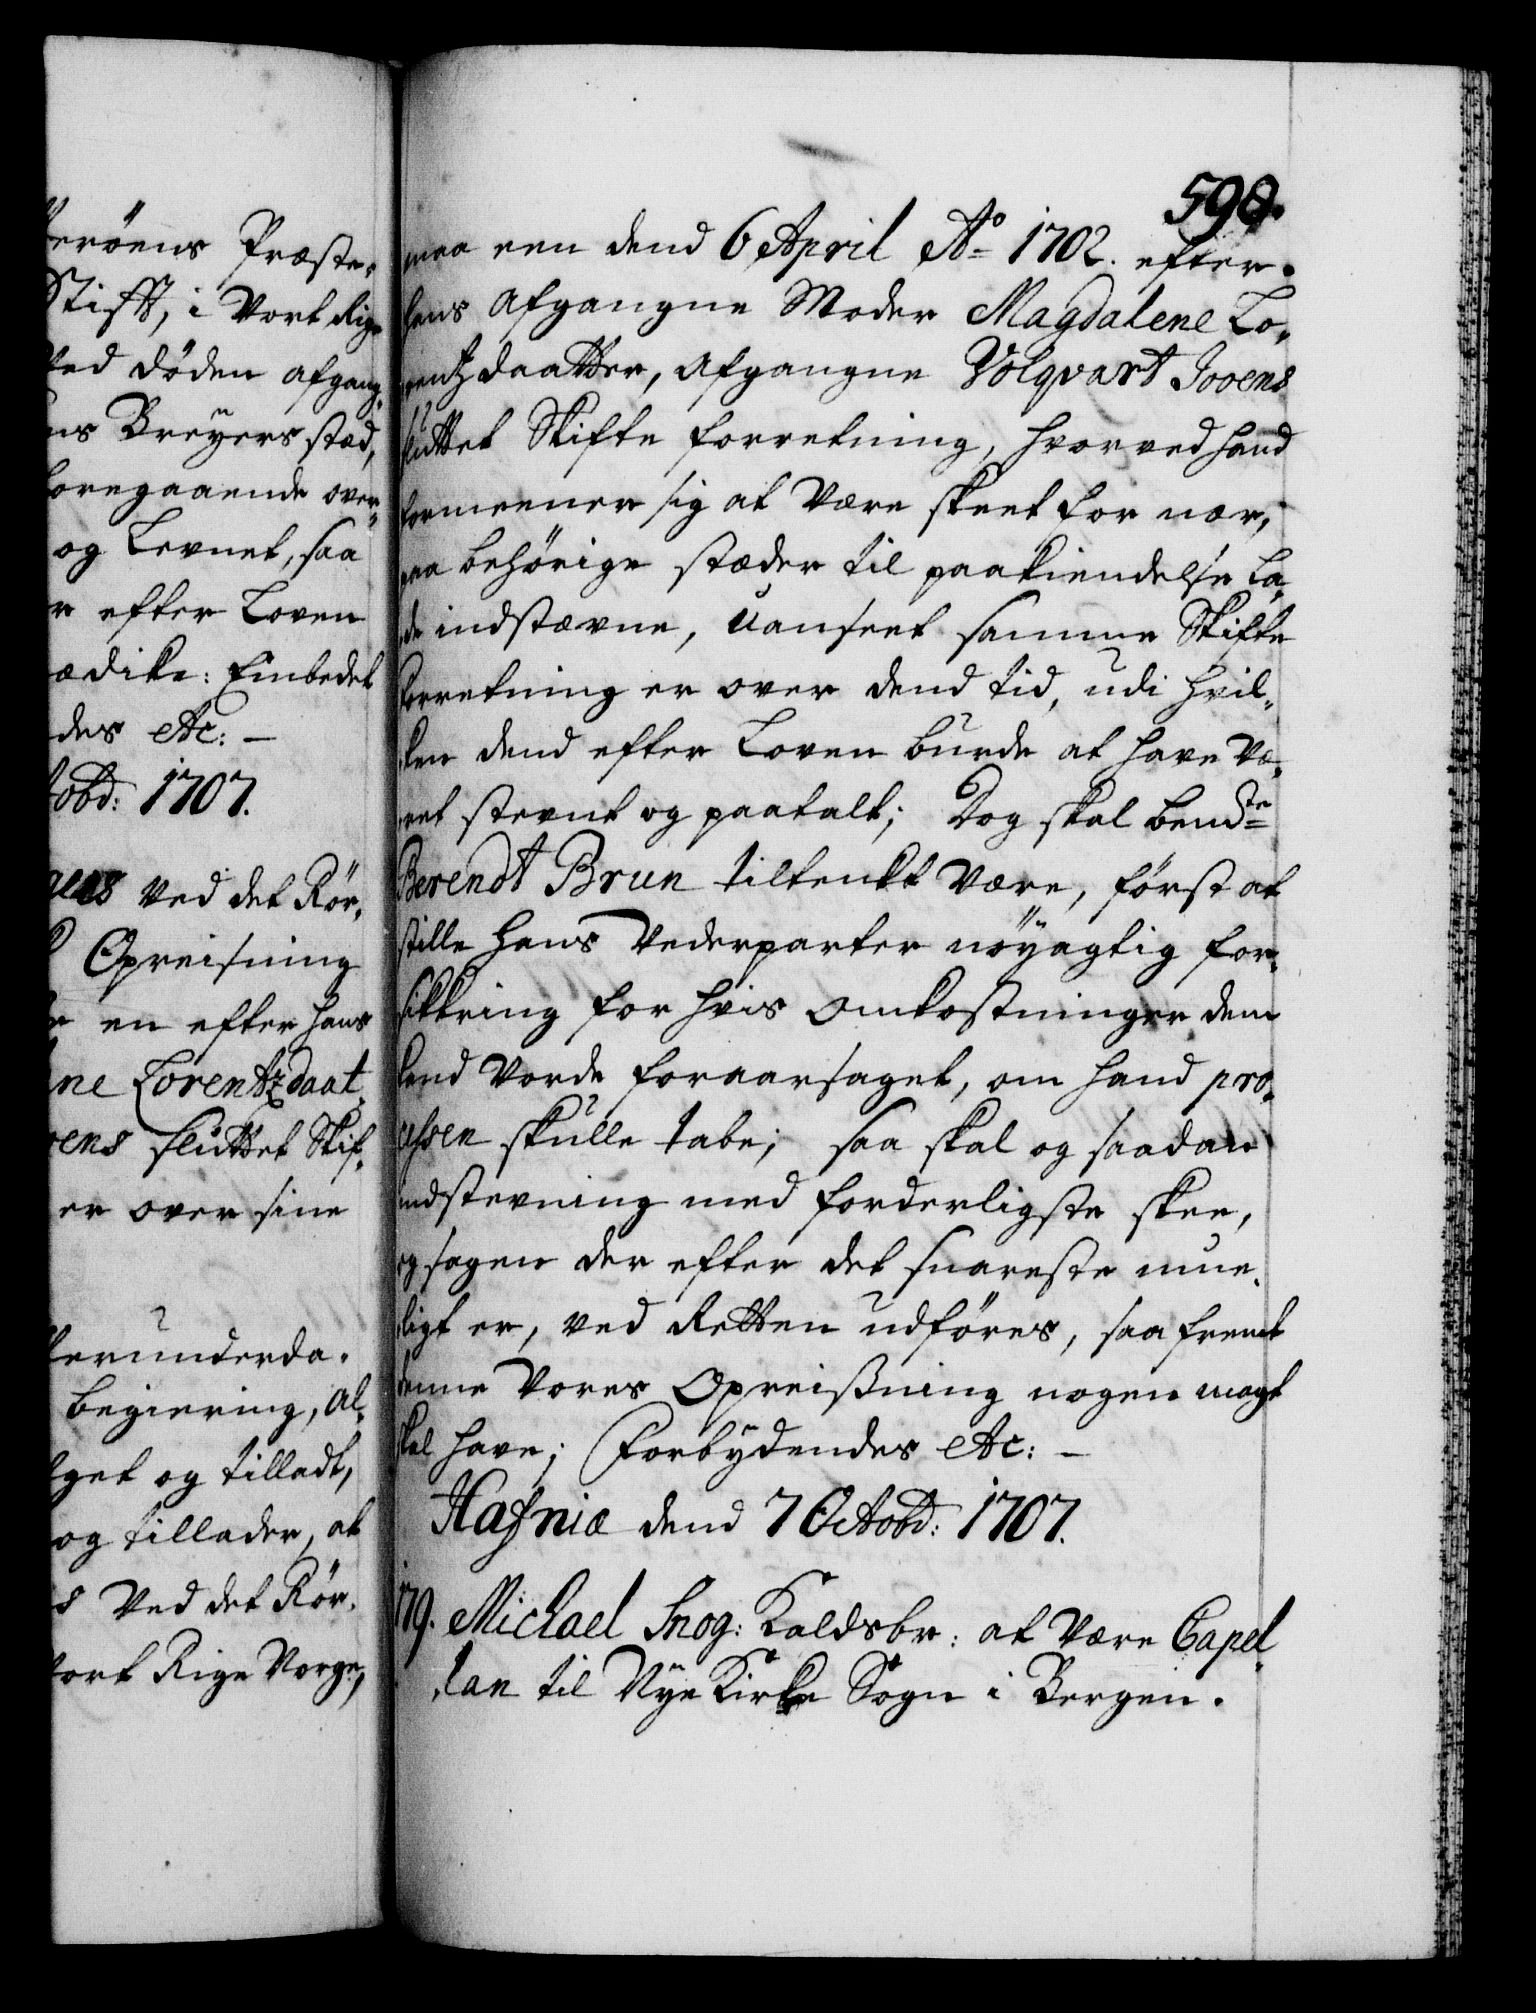 terøens Præste-
Stift, i Vort Rige
ved døden afgang-
ns Breÿers stæd,
foregaaende over-
og Levnet, saa
r efter Loven
ædike: Embedet
des etc: –
tobr: 1707.
ved det Kör-
Opreisning
en efter hans
ne Lorentzdaat-
vens sluttet Skif-
er over sine
lerunderda-
begiering, al-
get og tilladt,
og tillader, at
s ved det Kör-
Vort Rige Norge,
598.
maa een dend 6 April Ao 1702. efter
hans afgangne Moder Magdalene Lo-
rentzdaatter, afgangne Volqvart Jovens
sluttet Skifte forretning, hvorved hand
formeener sig at være skeet for nær,
paa behörige stæder til paakiendelse la-
de indstævne, uanseet samme Skifte
forretning er over dend tid, udi hvil-
ken dend efter Loven burde at have væ-
ret stevnt og paatalt; Dog skal bemte
Berendt Brun tiltenkt være, först at
stille hans Vederparter nöÿagtig for-
sikkring for hvis omkostninger dem
kand vorde foraarsaget, om hand pro-
cessen skulle tabe; saa skal og saadan
indstevning med forderligste skee,
og sagen der efter det snareste mue-
ligt er, ved Retten udföres, saafremt
denne Vores Opreißning nogen magt
skal have; Forbÿdendes etc: –
Hafniæ dend 7 Octobr: 1707.
179. Michael Snog: Kaldsbr: at være Capel-
lan til Nÿe Kirke Sogn i Bergen.